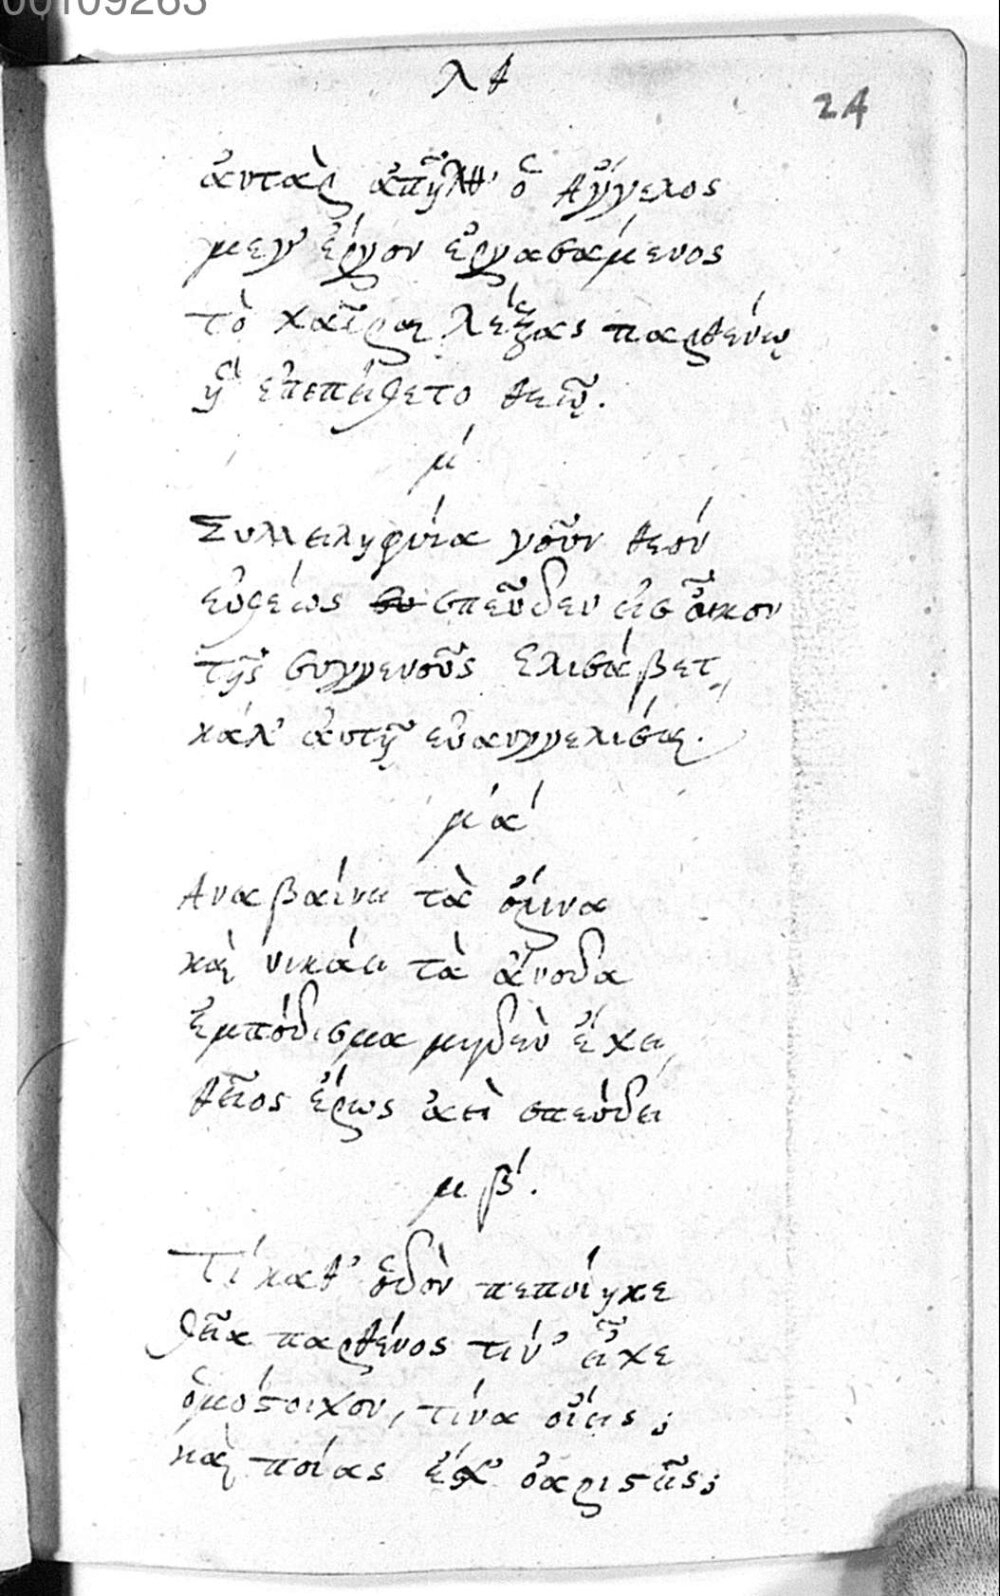 00109263
λθ
24
ἀυτὰρ ἀπῆλθ' ὁ Ἄγγελος
μεγ' ἔργον ἐργασάμενος
τὸ χαῖραι λέξας παρθένῳ
ἣ ἐπεπείθετο θεῷ.
μ'
Συλλειληφυία γοῦν θεόν
εὐθέως σπεῦδεν εἰς οἶκον
τῆς συγγενοῦς Ελισάβετ,
κάλ' ἀυτῇ εὐαγγελίσαι.
μα'
Αναβαίνει τὰ ὄρεινα
καὶ νικάει τὰ ἄνοδα
ἐμπόδισμα μηδὲν ἔχει,
θεῖος ἔρως ἀεὶ σπεύδει
μβ'.
Τί καθ' ὁδὸν πεποίηκε
θεῖα παρθένος τίν' εἶχε
ὁμόστοιχον, τίνα οἴεις;
καὶ ποίας ἔσχ' ὀαριστεῖς;